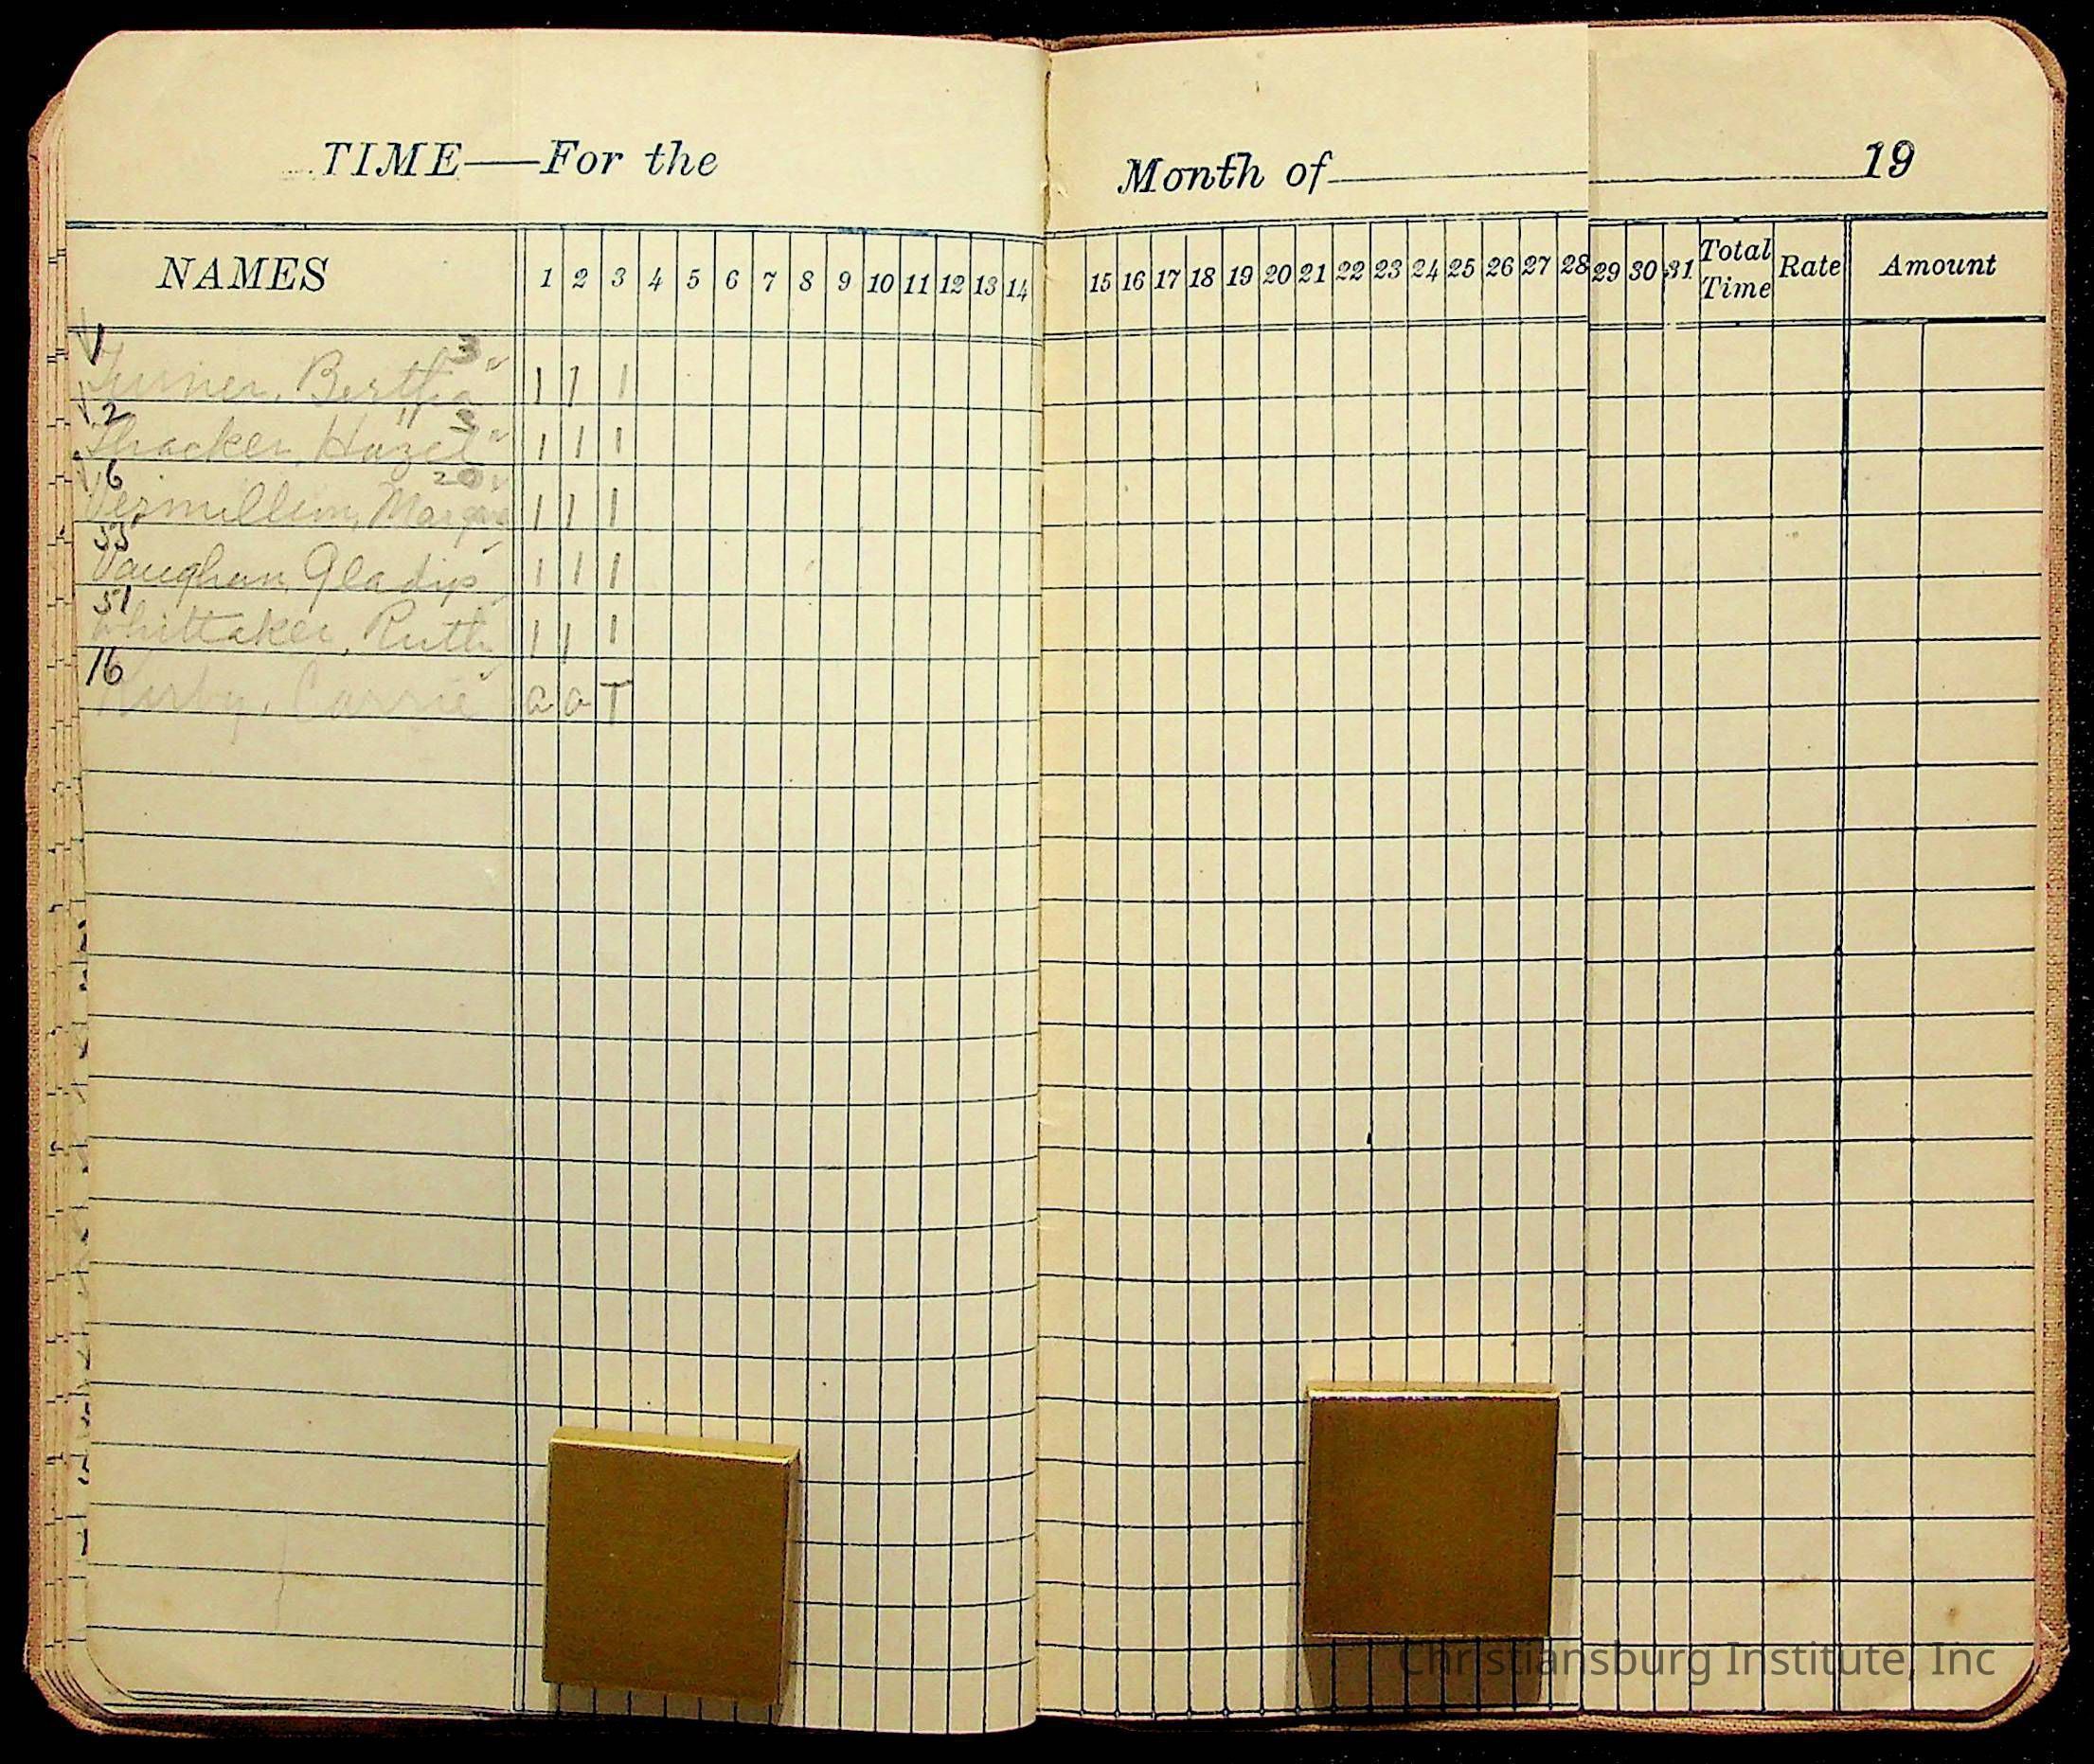 TIME—For the Month of 19
NAMES 1 2 3 4 5 6 7 8 9 10 11 12 13 14 15 16 17 18 19 20 21 22 23 24 25 26 27 28 29 30 31 Total Time Rate Amount
1 3
Turner, Bertha 1 1 1
2 3
Thacker, Hazel 1 1 1
6 20
Vermillion, 1 1 1
55
Vaughan, Gladys 1 1 1
51
Whittaker, Ruth 1 1 1
16
Kirby, Carrie a a T
Christiansburg Institute, Inc